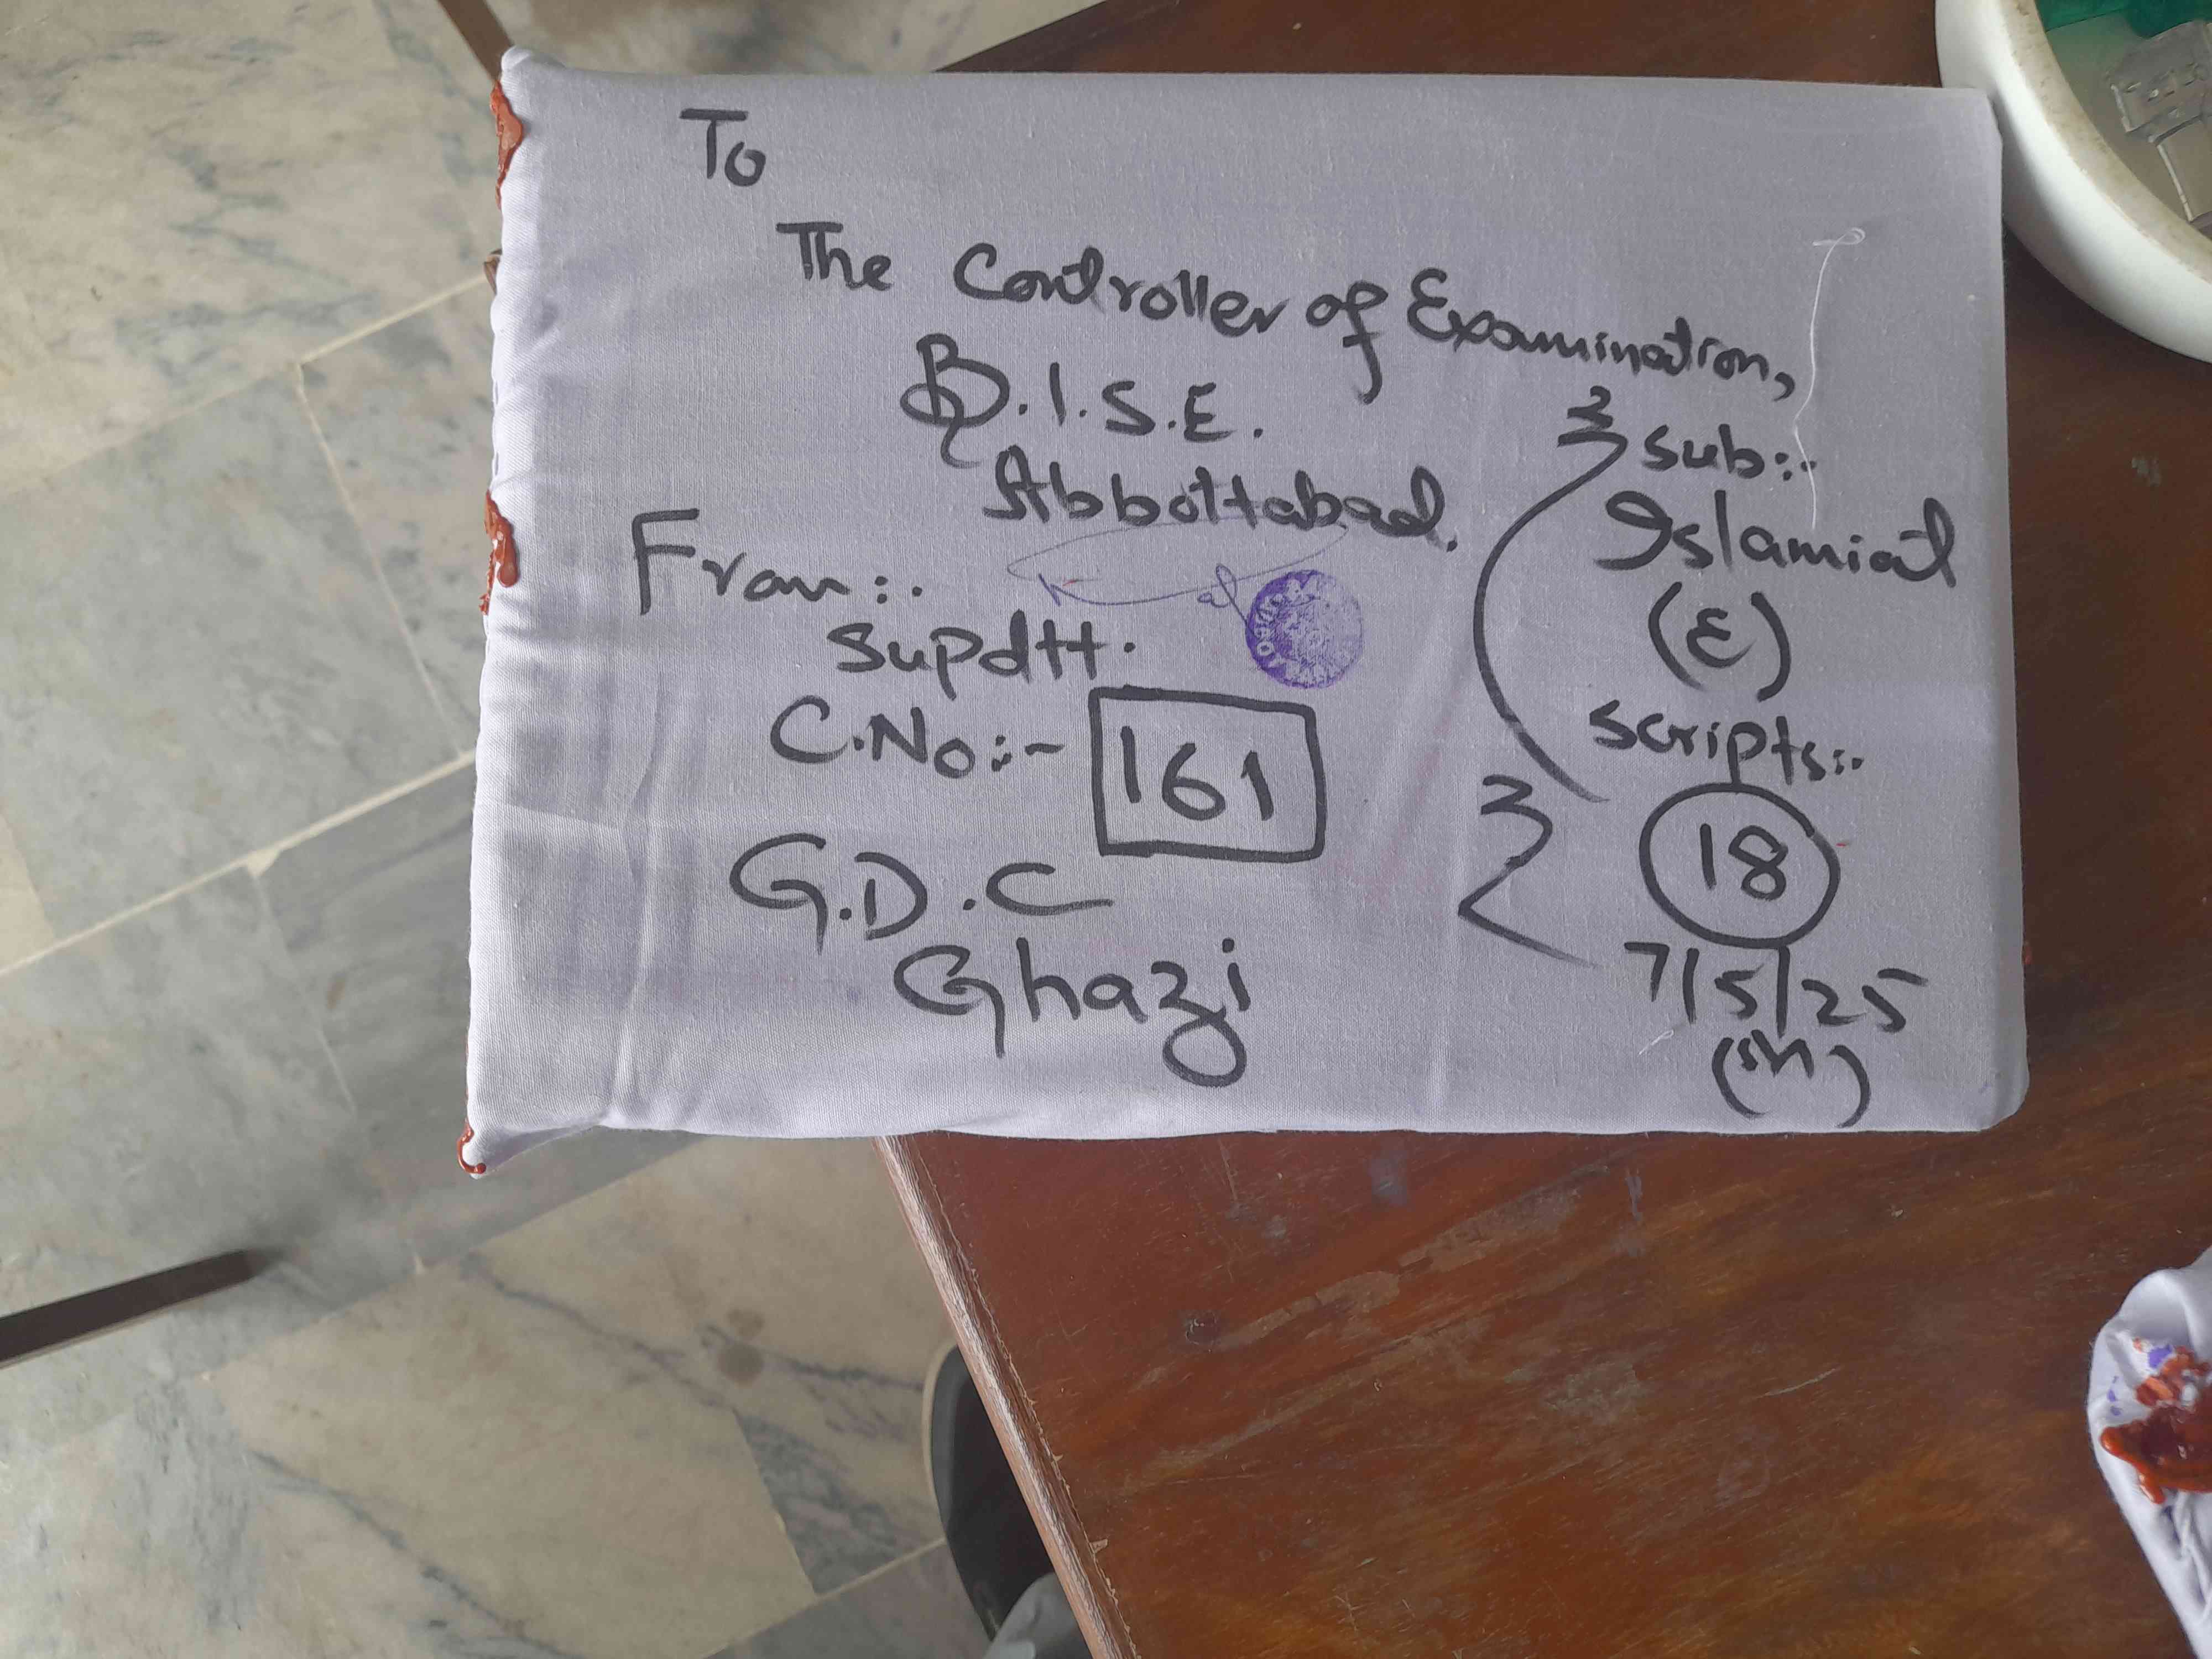 To
The Controller of Examination,
B.I.S.E.
Abbottabad.
From:.
Supdtt.
C.No:- 161
G.D.C
Ghazi
Sub:.
Islamiat
(E)
Scripts:.
18
7/5/25
(M)